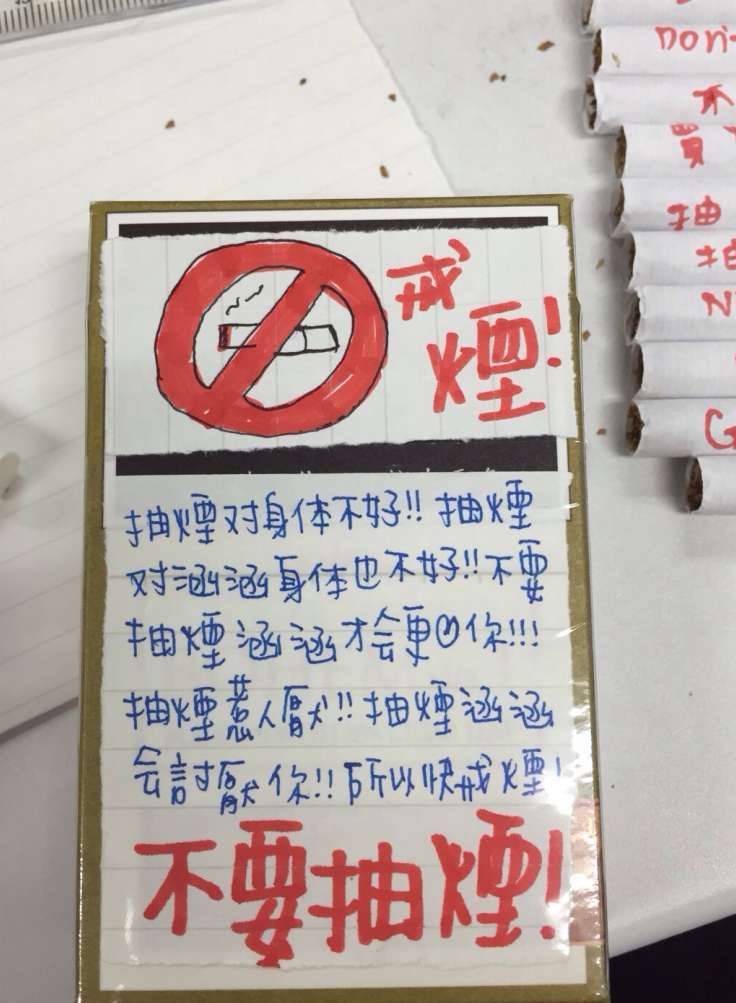 戒
煙!
抽煙对身体不好!! 抽煙
对涵涵身体也不好!! 不要
抽煙涵涵才会更你!!!
抽煙惹人厭!! 抽煙涵涵
会討厭你!! 所以快戒煙!
不要抽煙!
Don't
不
買
抽
N
G